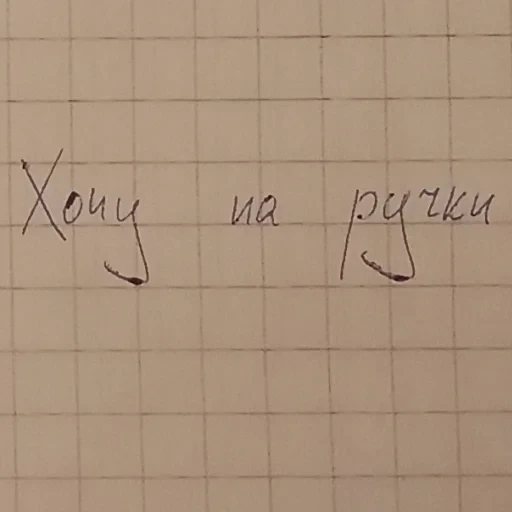 Хочу на ручки